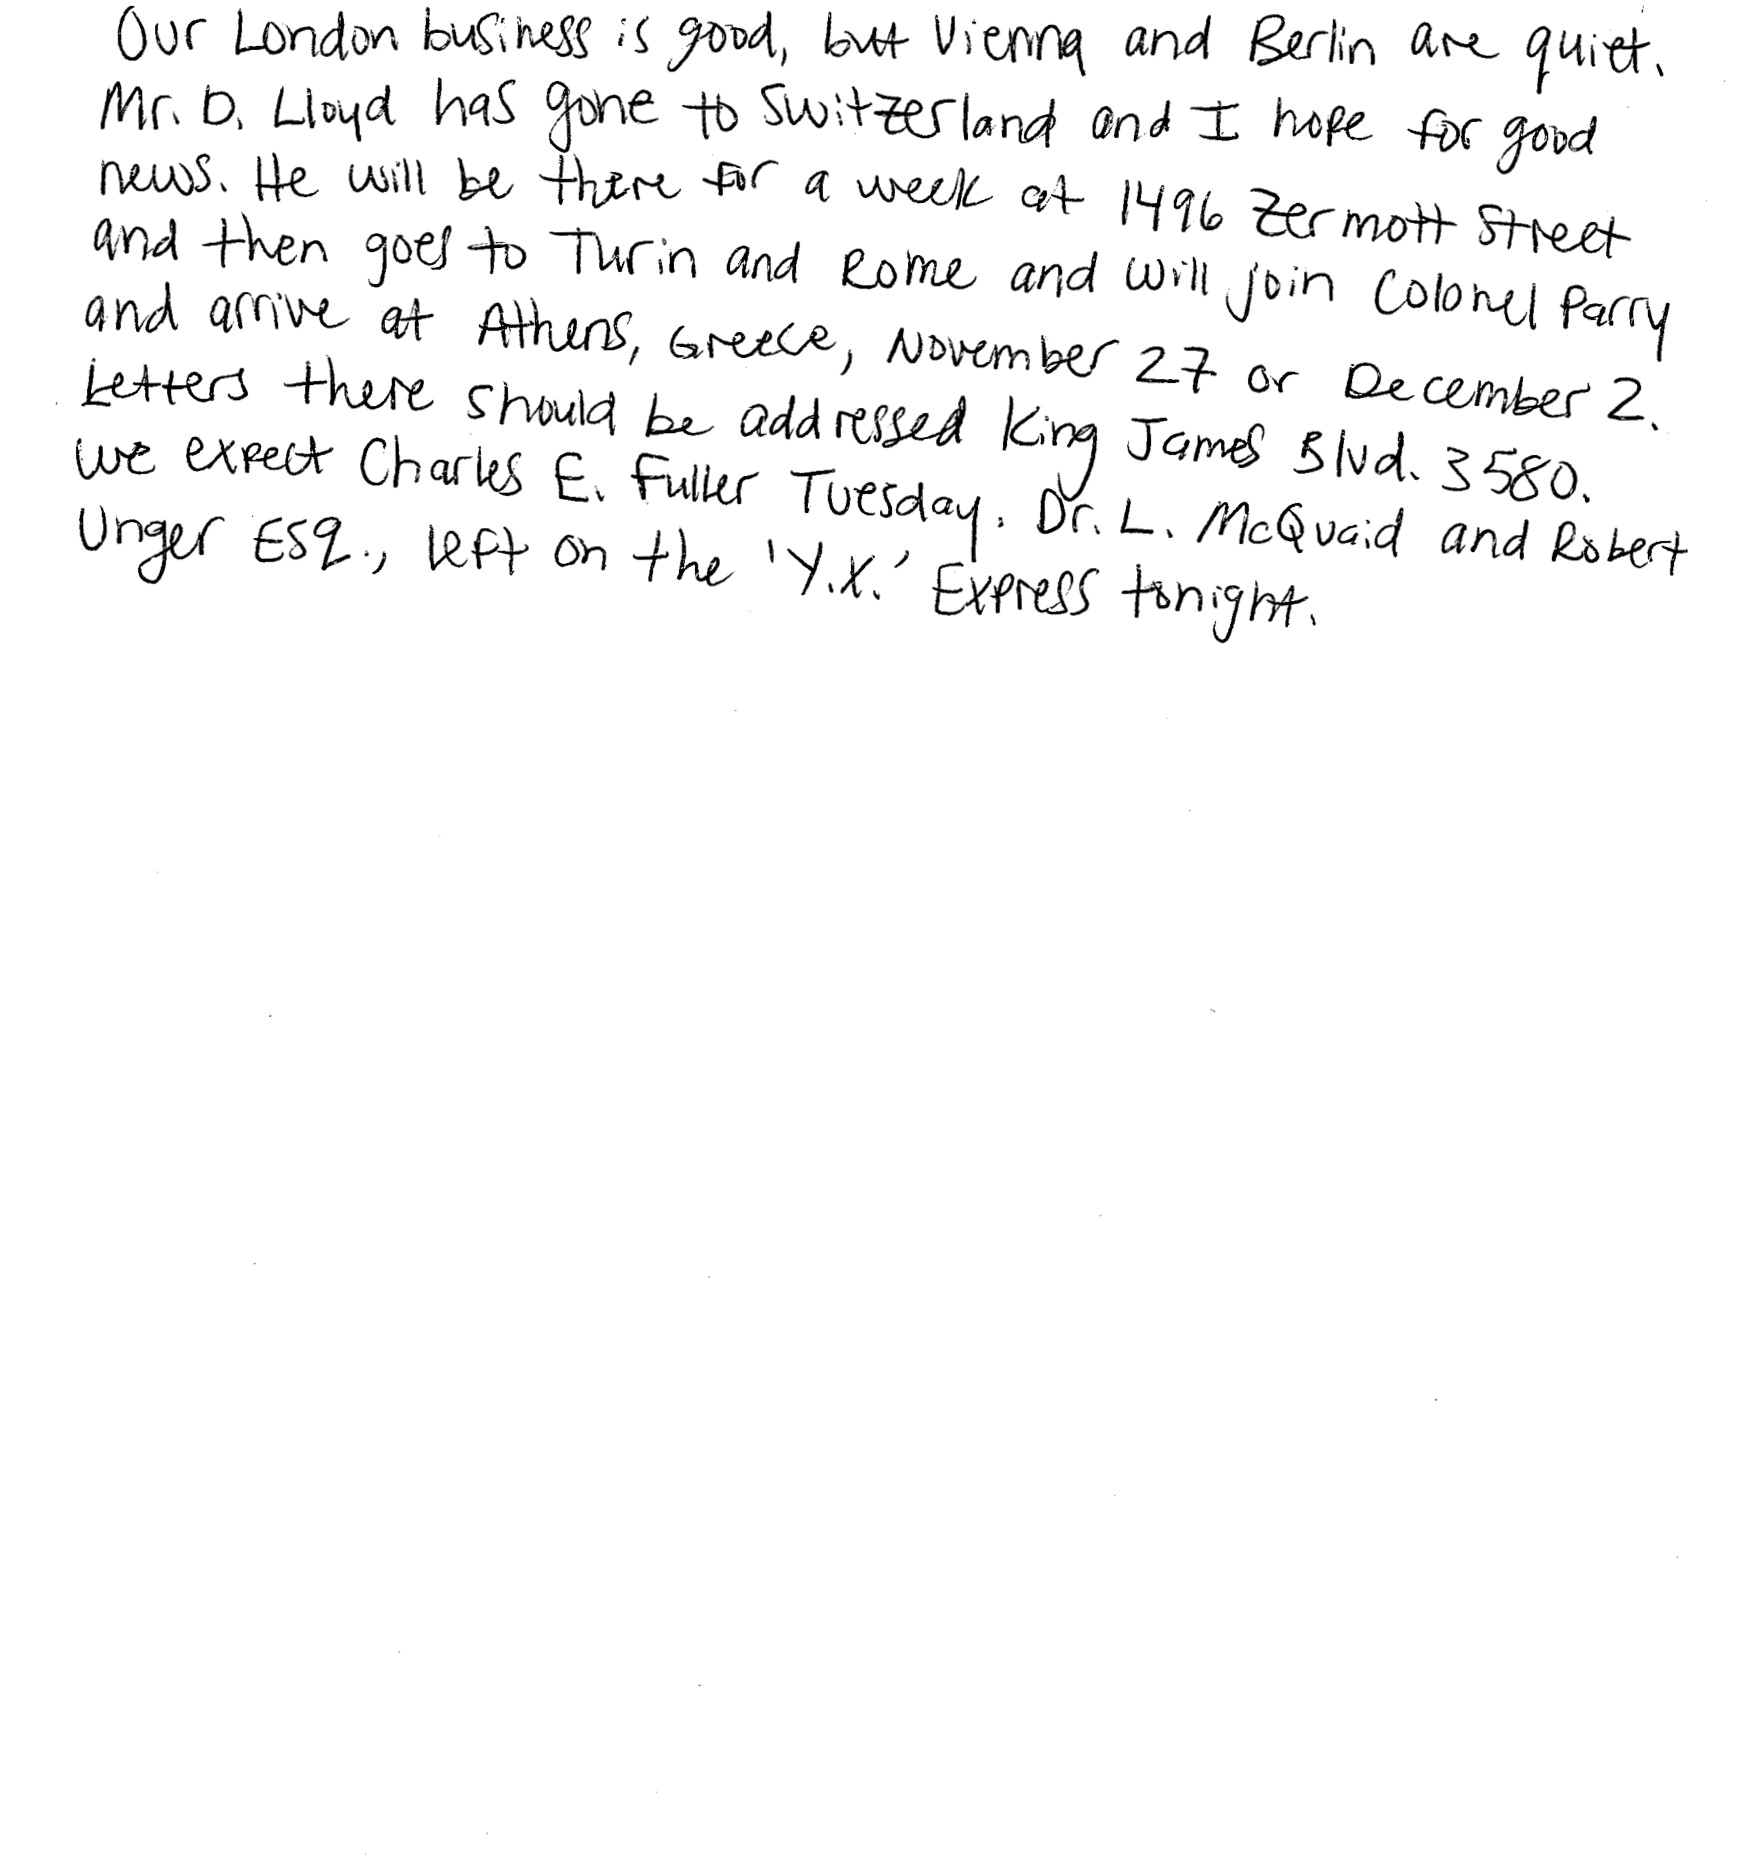 Our London business is good, but Vienna and Berlin are quiet.
Mr. D. Lloyd has gone to Switzerland and I hope for good
news. He will be there for a week at 1496 Zermott Street
and then goes to Turin and Rome and will join Colonel Parry
and arrive at Athens, Greece, November 27 or December 2.
Letters there should be addressed King James Blvd. 3580.
We expect Charles E. Fuller Tuesday. Dr. L. McQuaid and Robert
Unger Esq., left on the 'Y.X.' Express tonight.